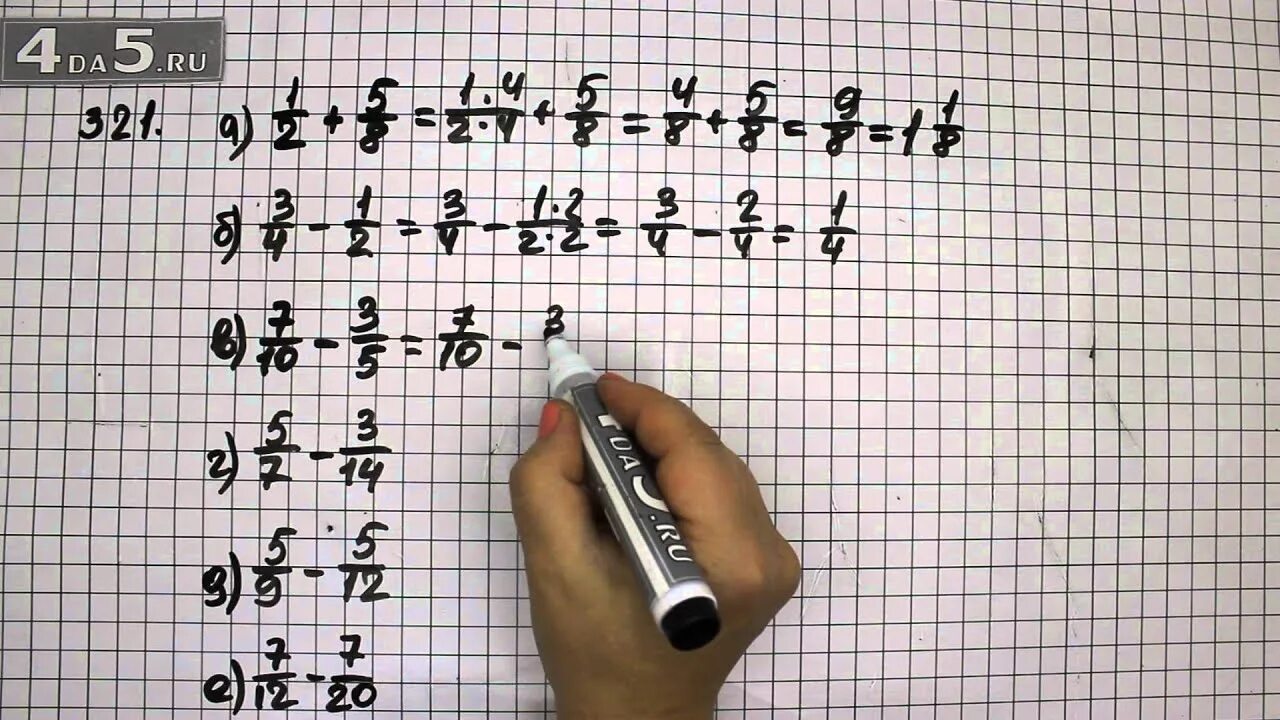 4DA5.RU
321. а) 1/2 + 5/8 = 1·4/2·4 + 5/8 = 4/8 + 5/8 = 9/8 = 1 1/8
б) 3/4 - 1/2 = 3/4 - 1·2/2·2 = 3/4 - 2/4 = 1/4
в) 7/10 - 3/5 = 7/10 - 3
г) 5/7 - 3/14
д) 5/9 - 5/12
е) 7/12 - 7/20
4DA5.RU